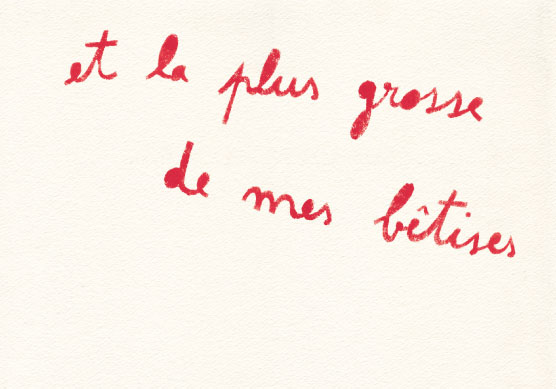 et la plus grosse
de mes bêtises